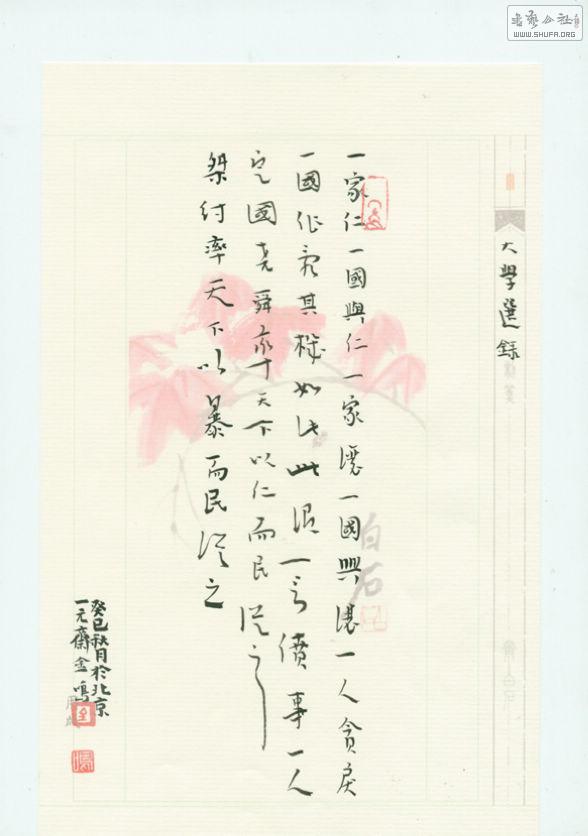 书艺公社
WWW.SHUFA.ORG
大學選錄
一家仁一國興仁一家讓一國興讓一人貪戾
一國作亂其機如此此謂一言僨事一人
定國堯舜率天下以仁而民從之
桀紂率天下以暴而民從之
白石
癸巳秋月於北京
一元齋金鳴